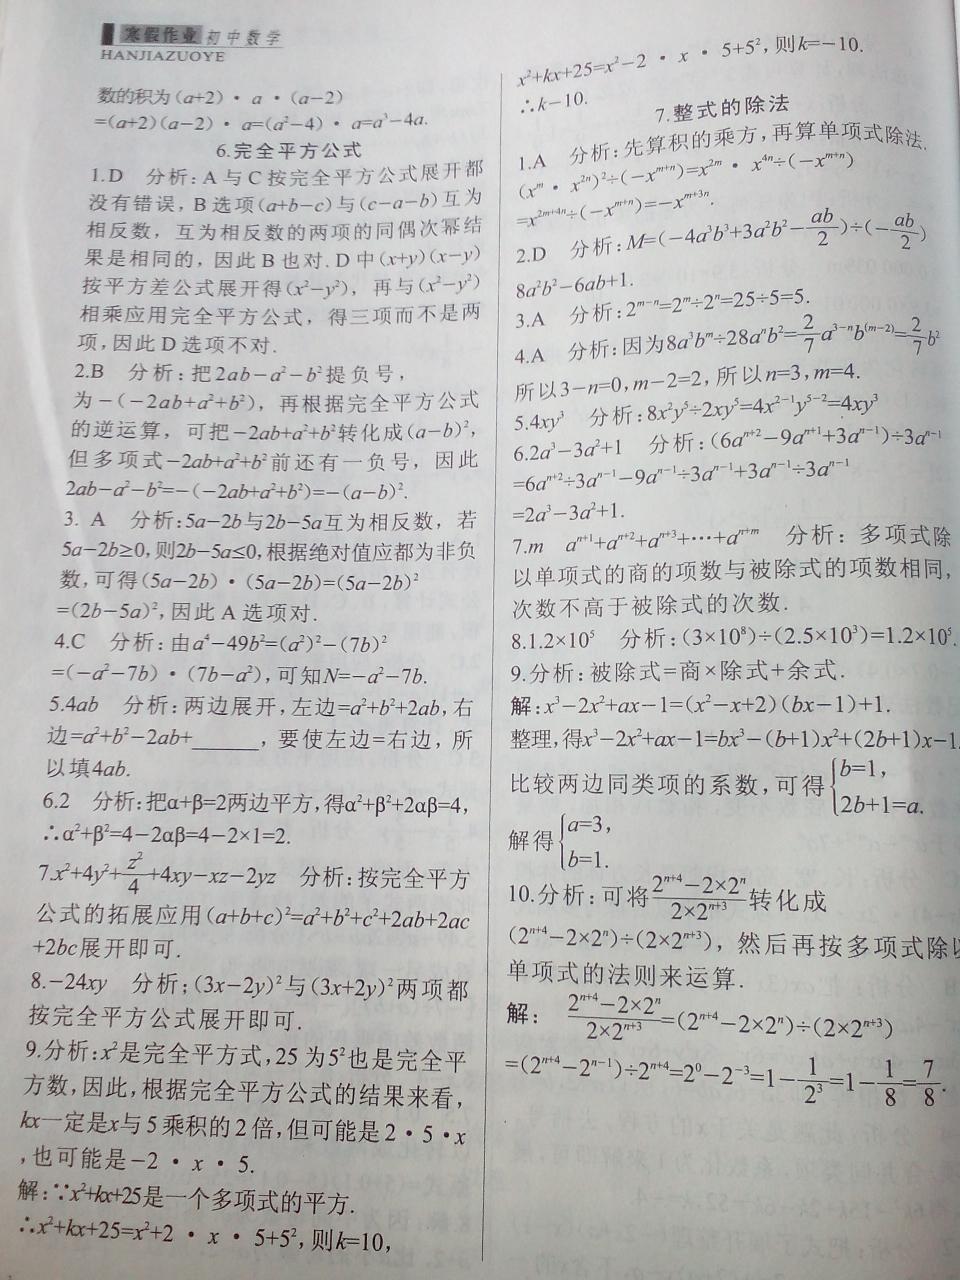 寒假作业 初中数学
HANJIAZUOYE
数的积为(a+2)·a·(a−2)
=(a+2)(a−2)·a=(a²−4)·a=a³−4a.
6.完全平方公式
1.D 分析:A与C按完全平方公式展开都
没有错误,B选项(a+b−c)与(c−a−b)互为
相反数,互为相反数的两项的同偶次幂结
果是相同的,因此B也对.D中(x+y)(x−y)
按平方差公式展开得(x²−y²),再与(x²−y²)
相乘应用完全平方公式,得三项而不是两
项,因此D选项不对.
2.B 分析:把2ab−a²−b²提负号,
为−(−2ab+a²+b²),再根据完全平方公式
的逆运算,可把−2ab+a²+b²转化成(a−b)²,
但多项式−2ab+a²+b²前还有一负号,因此
2ab−a²−b²=−(−2ab+a²+b²)=−(a−b)².
3. A 分析:5a−2b与2b−5a互为相反数,若
5a−2b≥0,则2b−5a≤0,根据绝对值应都为非负
数,可得(5a−2b)·(5a−2b)=(5a−2b)²
=(2b−5a)²,因此A选项对.
4.C 分析:由a⁴−49b²=(a²)²−(7b)²
=(−a²−7b)·(7b−a²),可知N=−a²−7b.
5.4ab 分析:两边展开,左边=a²+b²+2ab,右
边=a²+b²−2ab+______,要使左边=右边,所
以填4ab.
6.2 分析:把α+β=2两边平方,得α²+β²+2αβ=4,
∴α²+β²=4−2αβ=4−2×1=2.
7.x²+4y²+z²/4+4xy−xz−2yz 分析:按完全平方
公式的拓展应用(a+b+c)²=a²+b²+c²+2ab+2ac
+2bc展开即可.
8.−24xy 分析;(3x−2y)²与(3x+2y)²两项都
按完全平方公式展开即可.
9.分析:x²是完全平方式,25为5²也是完全平
方数,因此,根据完全平方公式的结果来看,
kx一定是x与5乘积的2倍,但可能是2·5·x
,也可能是−2·x·5.
解:∵x²+kx+25是一个多项式的平方.
∴x²+kx+25=x²+2·x·5+5²,则k=10,
x²+kx+25=x²−2·x·5+5²,则k=−10.
∴k−10.
7.整式的除法
1.A 分析:先算积的乘方,再算单项式除法.
(xᵐ·x²ⁿ)²÷(−xᵐ⁺ⁿ)=x²ᵐ·x⁴ⁿ÷(−xᵐ⁺ⁿ)
=x²ᵐ⁺⁴ⁿ÷(−xᵐ⁺ⁿ)=−xᵐ⁺³ⁿ.
2.D 分析:M=(−4a³b³+3a²b²−ab/2)÷(−ab/2)
8a²b²−6ab+1.
3.A 分析:2ᵐ⁻ⁿ=2ᵐ÷2ⁿ=25÷5=5.
4.A 分析:因为8a³bᵐ÷28aⁿb²=2/7a³⁻ⁿb⁽ᵐ⁻²⁾=2/7b²
所以3−n=0,m−2=2,所以n=3,m=4.
5.4xy³ 分析:8x²y⁵÷2xy⁵=4x²⁻¹y⁵⁻²=4xy³
6.2a³−3a²+1 分析:(6aⁿ⁺²−9aⁿ⁺¹+3aⁿ⁻¹)÷3aⁿ⁻¹
=6aⁿ⁺²÷3aⁿ⁻¹−9aⁿ⁻¹÷3aⁿ⁻¹+3aⁿ⁻¹÷3aⁿ⁻¹
=2a³−3a²+1.
7.m aⁿ⁺¹+aⁿ⁺²+aⁿ⁺³+⋯+aⁿ⁺ᵐ 分析:多项式除
以单项式的商的项数与被除式的项数相同,
次数不高于被除式的次数.
8.1.2×10⁵ 分析:(3×10⁸)÷(2.5×10³)=1.2×10⁵.
9.分析:被除式=商×除式+余式.
解:x³−2x²+ax−1=(x²−x+2)(bx−1)+1.
整理,得x³−2x²+ax−1=bx³−(b+1)x²+(2b+1)x−1.
比较两边同类项的系数,可得{b=1,
2b+1=a.
解得{a=3,
b=1.
10.分析:可将(2ⁿ⁺⁴−2×2ⁿ)/(2×2ⁿ⁺³)转化成
(2ⁿ⁺⁴−2×2ⁿ)÷(2×2ⁿ⁺³),然后再按多项式除以
单项式的法则来运算.
解:(2ⁿ⁺⁴−2×2ⁿ)/(2×2ⁿ⁺³)=(2ⁿ⁺⁴−2×2ⁿ)÷(2×2ⁿ⁺³)
=(2ⁿ⁺⁴−2ⁿ⁻¹)÷2ⁿ⁺⁴=2⁰−2⁻³=1−1/2³=1−1/8=7/8.